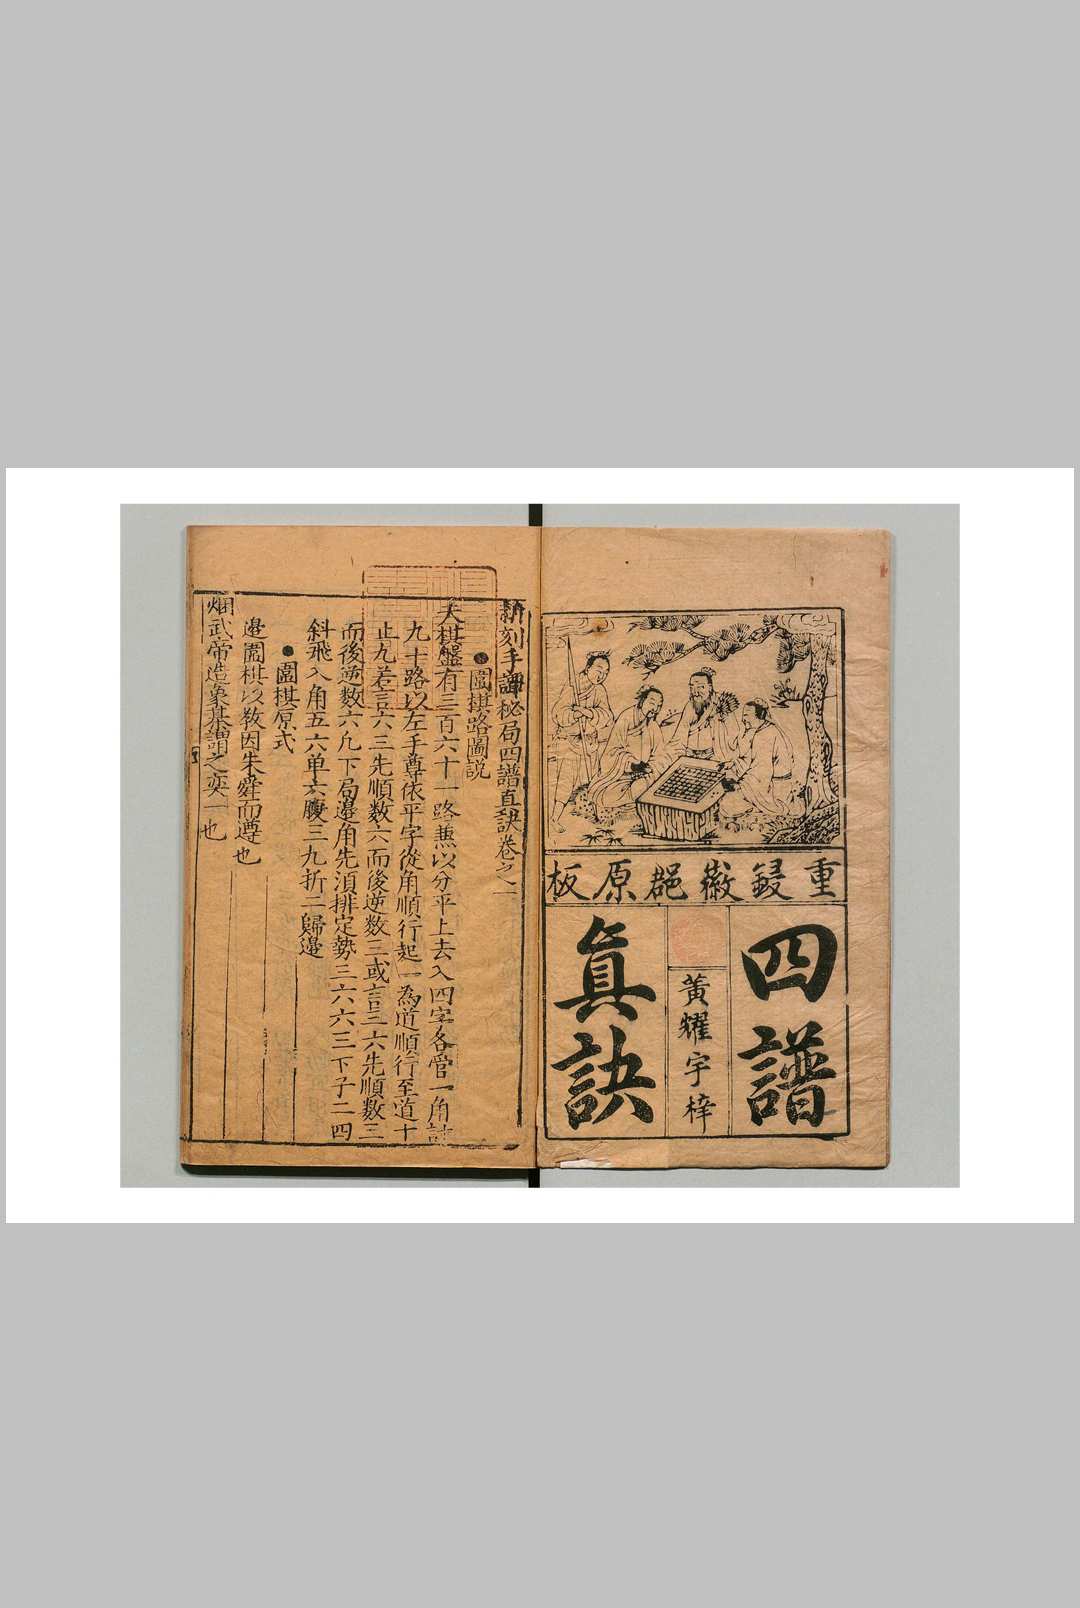 重鋟徽郡原板
四譜
黃耀宇梓
真訣
新刻手談秘局四譜直訣卷之一
●圍棋路圖説
夫棋盤有三百六十一路兼以分平上去入四字各管一角計
九十路以左手尊依平字從角順行起一為道順行至道十
止九若言六三先順数六而後逆数三或言三六先順数三
而後逆数六凡下局邉角先湏排定勢三六六三下子二四
斜飛入角五六单六腹三九折二歸邉
●圍棋原式
邉圍棋以教因朱舜而遵也
武帝造象棊譜之奕一也